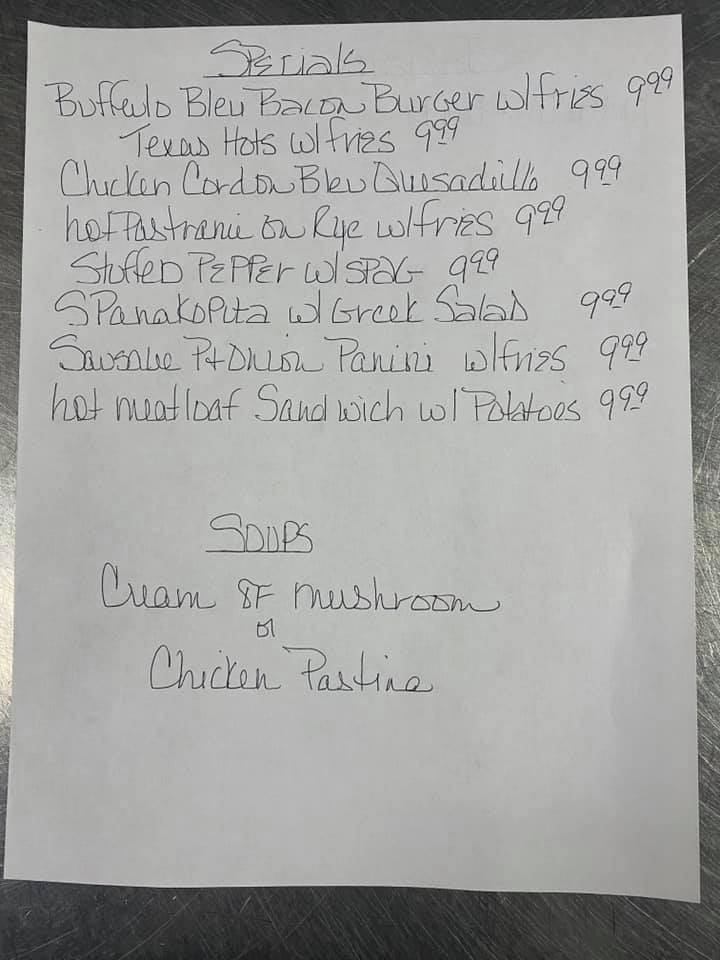 Specials
Buffalo Bleu Bacon Burger w/fries 9.99
Texas Hots w/fries 9.99
Chicken Cordon Bleu Quesadilla 9.99
hot Pastrami on Rye w/fries 9.99
Stuffed Pepper w/ SPAG 9.99
Spanakopita w/ Greek Salad 9.99
Sausage P+Onion Panini w/fries 9.99
hot meatloaf Sandwich w/ Potatoes 9.99
Soups
Cream of mushroom
or
Chicken Pastina